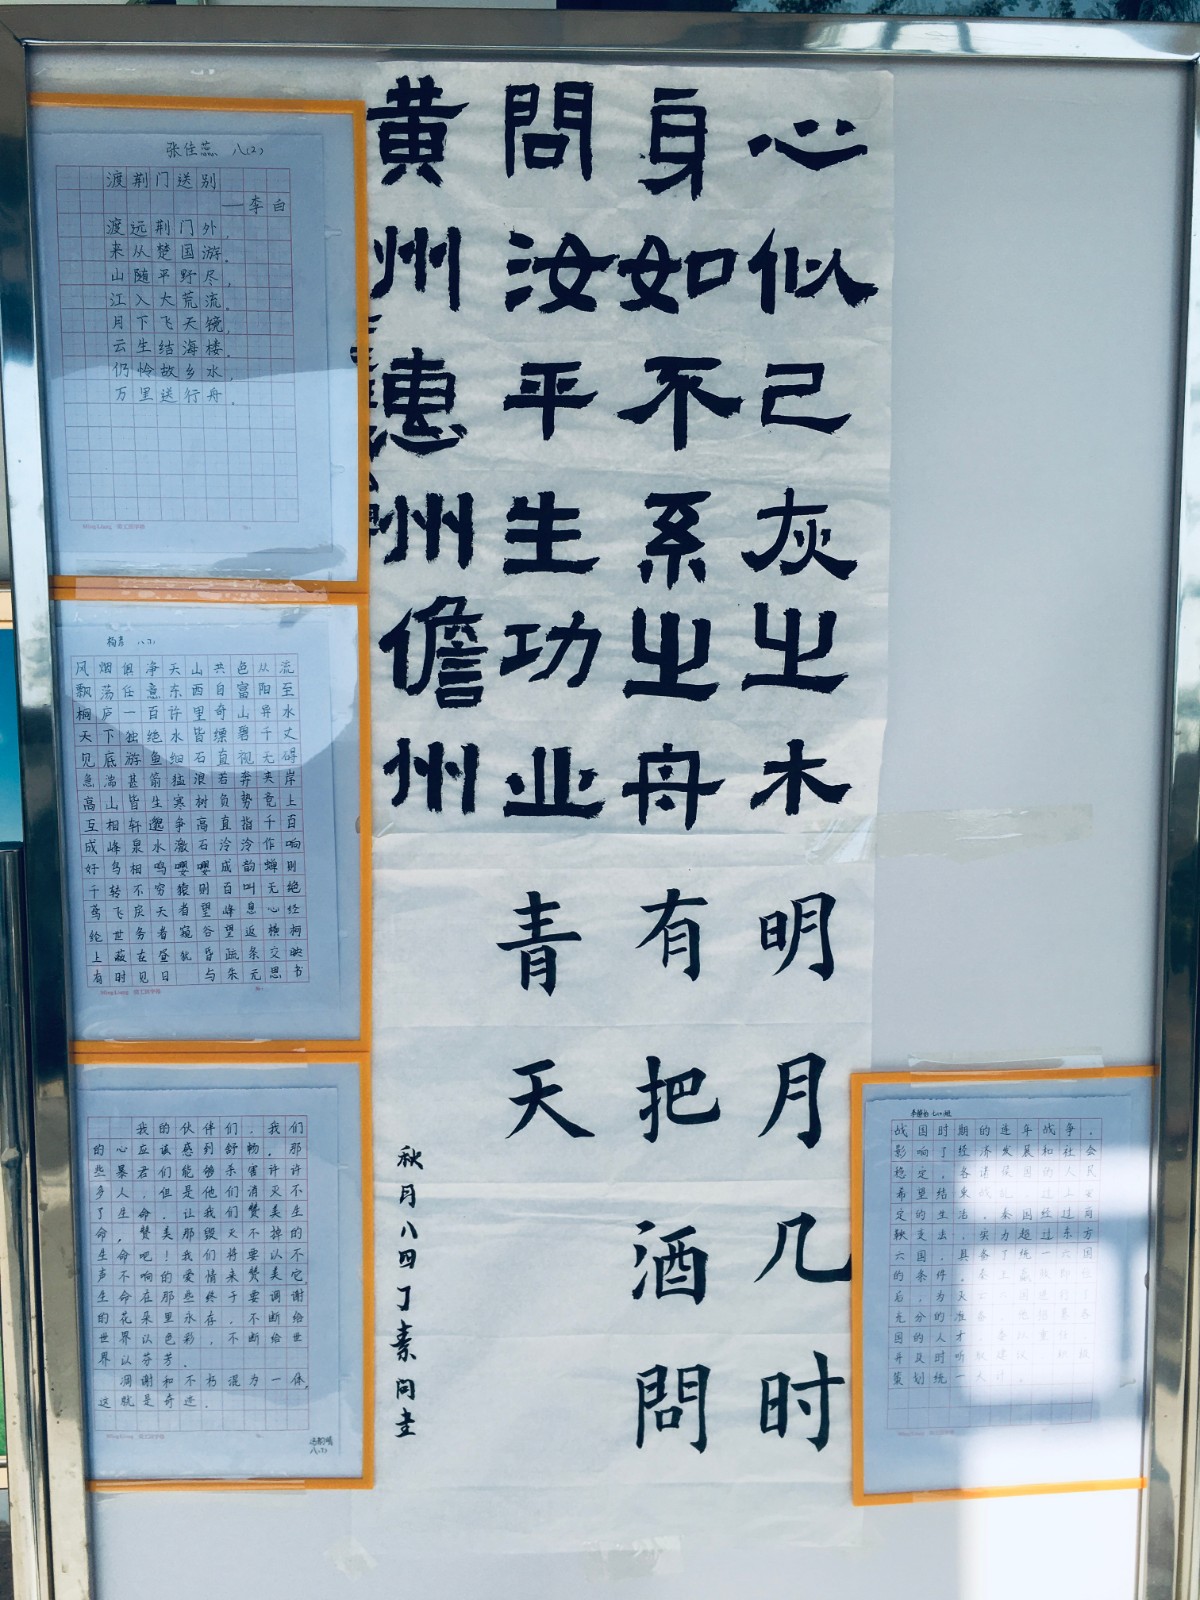 张佳蕊 八(2)
渡荆门送别
—李白
渡远荆门外,
来从楚国游。
山随平野尽,
江入大荒流。
月下飞天镜,
云生结海楼。
仍怜故乡水,
万里送行舟。
八(1)
风烟俱净天山共色从流
飘荡任意东西自富阳至
桐庐一百许里奇山异水
天下独绝水皆缥碧千丈
见底游鱼细石直视无碍
急湍甚箭猛浪若奔夹岸
高山皆生寒树负势竞上
互相轩邈争高直指千百
成峰泉水激石泠泠作响
好鸟相鸣嘤嘤成韵蝉则
千转不穷猿则百叫无绝
鸢飞戾天者望峰息心经
纶世务者窥谷望返横柯
上蔽在昼犹昏疏条交映
有时见日 与朱元思书
我的伙伴们,我们
的心应该感到舒畅。那
些暴君们能够杀害许许
多人,但是他们消灭不
了生命。让我们赞美生
命,赞美那毁灭不掉的
生命吧!我们将要以不
声不响的爱情来赞美它。
生命在那些终于要调谢
的花朵里永存,不断给
世界以色彩,不断给世
界以芬芳。
凋谢和不朽混为一体,
这就是奇迹。
八(1)
心似己灰之木
身如不系之舟
問汝平生功业
黄州惠州儋州
明月几时
有把酒問
青天
秋月八四丁素问
战国时期的连年战争,
影响了经济发展和社会
稳定,各诸侯国的人民
希望结束战乱,过上安
定的生活。秦国经过商
鞅变法,实力超过东方
六国,具备了统一六国
的条件。
后,为灭
充分的准备
国的人才
并及时听
策划统一大计。